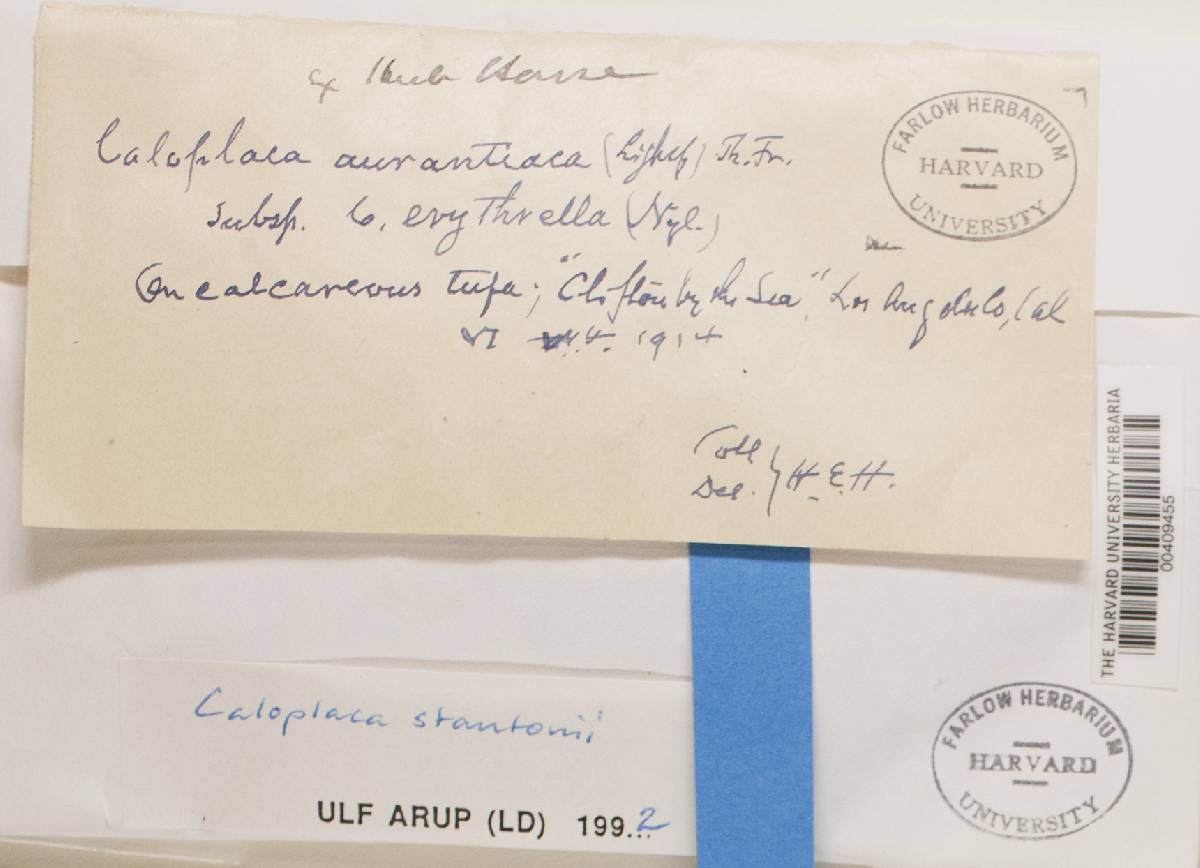 ex Herb Hasse
Caloplaca aurantiaca (Lightf) Th. Fr.
Subsp. C. erythrella (Nyl.)
On calcareous tufa; "Clifton by the Sea", Los Angeles, Cal
VI 1914
Coll
Det. } H. E. H.
FARLOW HERBARIUM
HARVARD
UNIVERSITY
THE HARVARD UNIVERSITY HERBARIA
00409455
Caloplaca stantonii
ULF ARUP (LD) 199..2
FARLOW HERBARIUM
HARVARD
UNIVERSITY